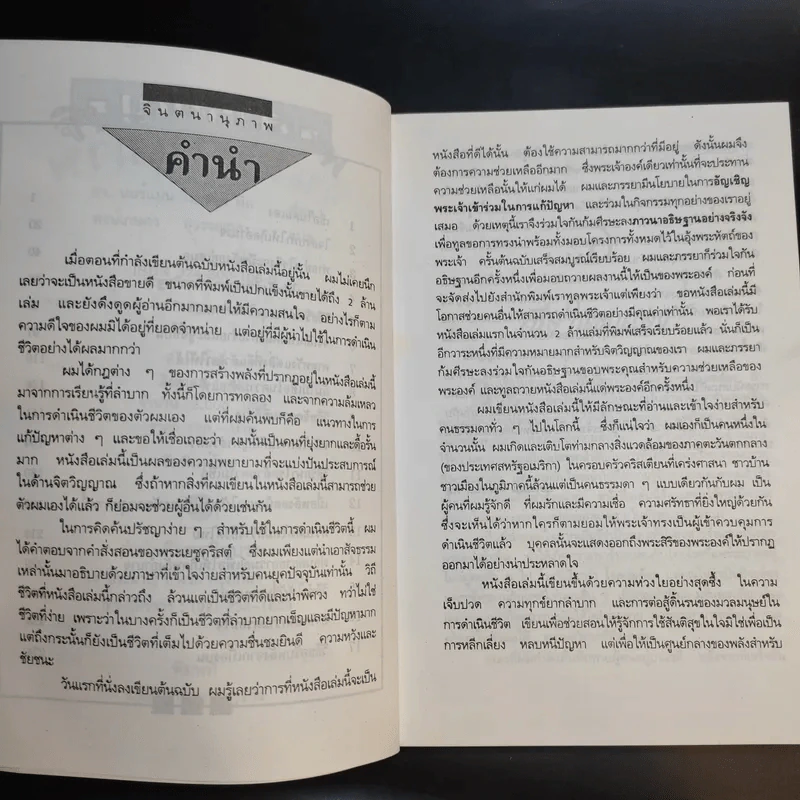 จินตนานุภาพ
คำนำ
เมื่อตอนที่กำลังเขียนต้นฉบับหนังสือเล่มนี้อยู่นั้น ผมไม่เคยนึก
เลยว่าจะเป็นหนังสือขายดี ขนาดที่พิมพ์เป็นปกแข็งนั้นขายได้ถึง 2 ล้าน
เล่ม และยังดึงดูดผู้อ่านอีกมากมายให้มีความสนใจ อย่างไรก็ตาม
ความดีใจของผมมิได้อยู่ที่ยอดจำหน่าย แต่อยู่ที่มีผู้นำไปใช้ในการดำเนิน
ชีวิตอย่างได้ผลมากกว่า
ผมได้กฎต่าง ๆ ของการสร้างพลังที่ปรากฏอยู่ในหนังสือเล่มนี้
มาจากการเรียนรู้ที่ลำบาก ทั้งนี้ก็โดยการทดลอง และจากความล้มเหลว
ในการดำเนินชีวิตของตัวผมเอง แต่ที่ผมค้นพบก็คือ แนวทางในการ
แก้ปัญหาต่าง ๆ และขอให้เชื่อเถอะว่า ผมนั้นเป็นคนที่ยุ่งยากและดื้อรั้น
มาก หนังสือเล่มนี้เป็นผลของความพยายามที่จะแบ่งปันประสบการณ์
ในด้านจิตวิญญาณ ซึ่งถ้าหากสิ่งที่ผมเขียนในหนังสือเล่มนี้สามารถช่วย
ตัวผมเองได้แล้ว ก็ย่อมจะช่วยผู้อื่นได้ด้วยเช่นกัน
ในการคิดค้นปรัชญาง่าย ๆ สำหรับใช้ในการดำเนินชีวิตนี้ ผม
ได้คำตอบจากคำสั่งสอนของพระเยซูคริสต์ ซึ่งผมเพียงแต่นำเอาสัจธรรม
เหล่านั้นมาอธิบายด้วยภาษาที่เข้าใจง่ายสำหรับคนยุคปัจจุบันเท่านั้น วิถี
ชีวิตที่หนังสือเล่มนี้กล่าวถึง ล้วนแต่เป็นชีวิตที่ดีและน่าพิศวง ทว่าไม่ใช่
ชีวิตที่ง่าย เพราะว่าในบางครั้งก็เป็นชีวิตที่ลำบากยากเข็ญและมีปัญหามาก
แต่ถึงกระนั้นก็ยังเป็นชีวิตที่เต็มไปด้วยความชื่นชมยินดี ความหวังและ
ชัยชนะ
วันแรกที่นั่งลงเขียนต้นฉบับ ผมรู้เลยว่าการที่หนังสือเล่มนี้จะเป็น
หนังสือที่ดีได้นั้น ต้องใช้ความสามารถมากกว่าที่มีอยู่ ดังนั้นผมจึง
ต้องการความช่วยเหลืออีกมาก ซึ่งพระเจ้าองค์เดียวเท่านั้นที่จะประทาน
ความช่วยเหลือนั้นให้แก่ผมได้ ผมและภรรยามีนโยบายในการอัญเชิญ
พระเจ้าเข้าร่วมในการแก้ปัญหา และร่วมในกิจกรรมทุกอย่างของเราอยู่
เสมอ ด้วยเหตุนี้เราจึงร่วมใจกันก้มศีรษะลงภาวนาอธิษฐานอย่างจริงจัง
เพื่อทูลขอการทรงนำพร้อมทั้งมอบโครงการทั้งหมดไว้ในอุ้งพระหัตถ์ของ
พระเจ้า ครั้นต้นฉบับเสร็จสมบูรณ์เรียบร้อย ผมและภรรยาก็ร่วมใจกัน
อธิษฐานอีกครั้งหนึ่งเพื่อมอบถวายผลงานนี้ให้เป็นของพระองค์ ก่อนที่
จะจัดส่งไปยังสำนักพิมพ์เราทูลพระเจ้าแต่เพียงว่า ขอหนังสือเล่มนี้มี
โอกาสช่วยคนอื่นให้สามารถดำเนินชีวิตอย่างมีคุณค่าเท่านั้น พอเราได้รับ
หนังสือเล่มแรกในจำนวน 2 ล้านเล่มที่พิมพ์เสร็จเรียบร้อยแล้ว นั่นก็เป็น
อีกวาระหนึ่งที่มีความหมายมากสำหรับจิตวิญญาณของเรา ผมและภรรยา
ก้มศีรษะลงร่วมใจกันอธิษฐานขอบพระคุณสำหรับความช่วยเหลือของ
พระองค์ และทูลถวายหนังสือเล่มนี้แด่พระองค์อีกครั้งหนึ่ง
ผมเขียนหนังสือเล่มนี้ให้มีลักษณะที่อ่านและเข้าใจง่ายสำหรับ
คนธรรมดาทั่ว ๆ ไปในโลกนี้ ซึ่งก็แน่ใจว่า ผมเองก็เป็นคนหนึ่งใน
จำนวนนั้น ผมเกิดและเติบโตท่ามกลางสิ่งแวดล้อมของภาคตะวันตกกลาง
(ของประเทศสหรัฐอเมริกา) ในครอบครัวคริสเตียนที่เคร่งศาสนา ชาวบ้าน
ชาวเมืองในภูมิภาคนี้ล้วนแต่เป็นคนธรรมดา ๆ แบบเดียวกันกับผม เป็น
ผู้คนที่ผมรู้จักดี ที่ผมรักและมีความเชื่อ ความศรัทธาที่ยิ่งใหญ่ด้วยกัน
ซึ่งจะเห็นได้ว่าหากใครก็ตามยอมให้พระเจ้าทรงเป็นผู้เข้าควบคุมการ
ดำเนินชีวิตแล้ว บุคคลนั้นจะแสดงออกถึงพระสิริของพระองค์ให้ปรากฏ
ออกมาได้อย่างน่าประหลาดใจ
หนังสือเล่มนี้เขียนขึ้นด้วยความห่วงใยอย่างสุดซึ้ง ในความ
เจ็บปวด ความทุกข์ยากลำบาก และการต่อสู้ดิ้นรนของมวลมนุษย์ใน
การดำเนินชีวิต เขียนเพื่อช่วยสอนให้รู้จักการใช้สันติสุขในใจมิใช่เพื่อเป็น
การหลีกเลี่ยง หลบหนีปัญหา แต่เพื่อให้เป็นศูนย์กลางของพลังสำหรับ